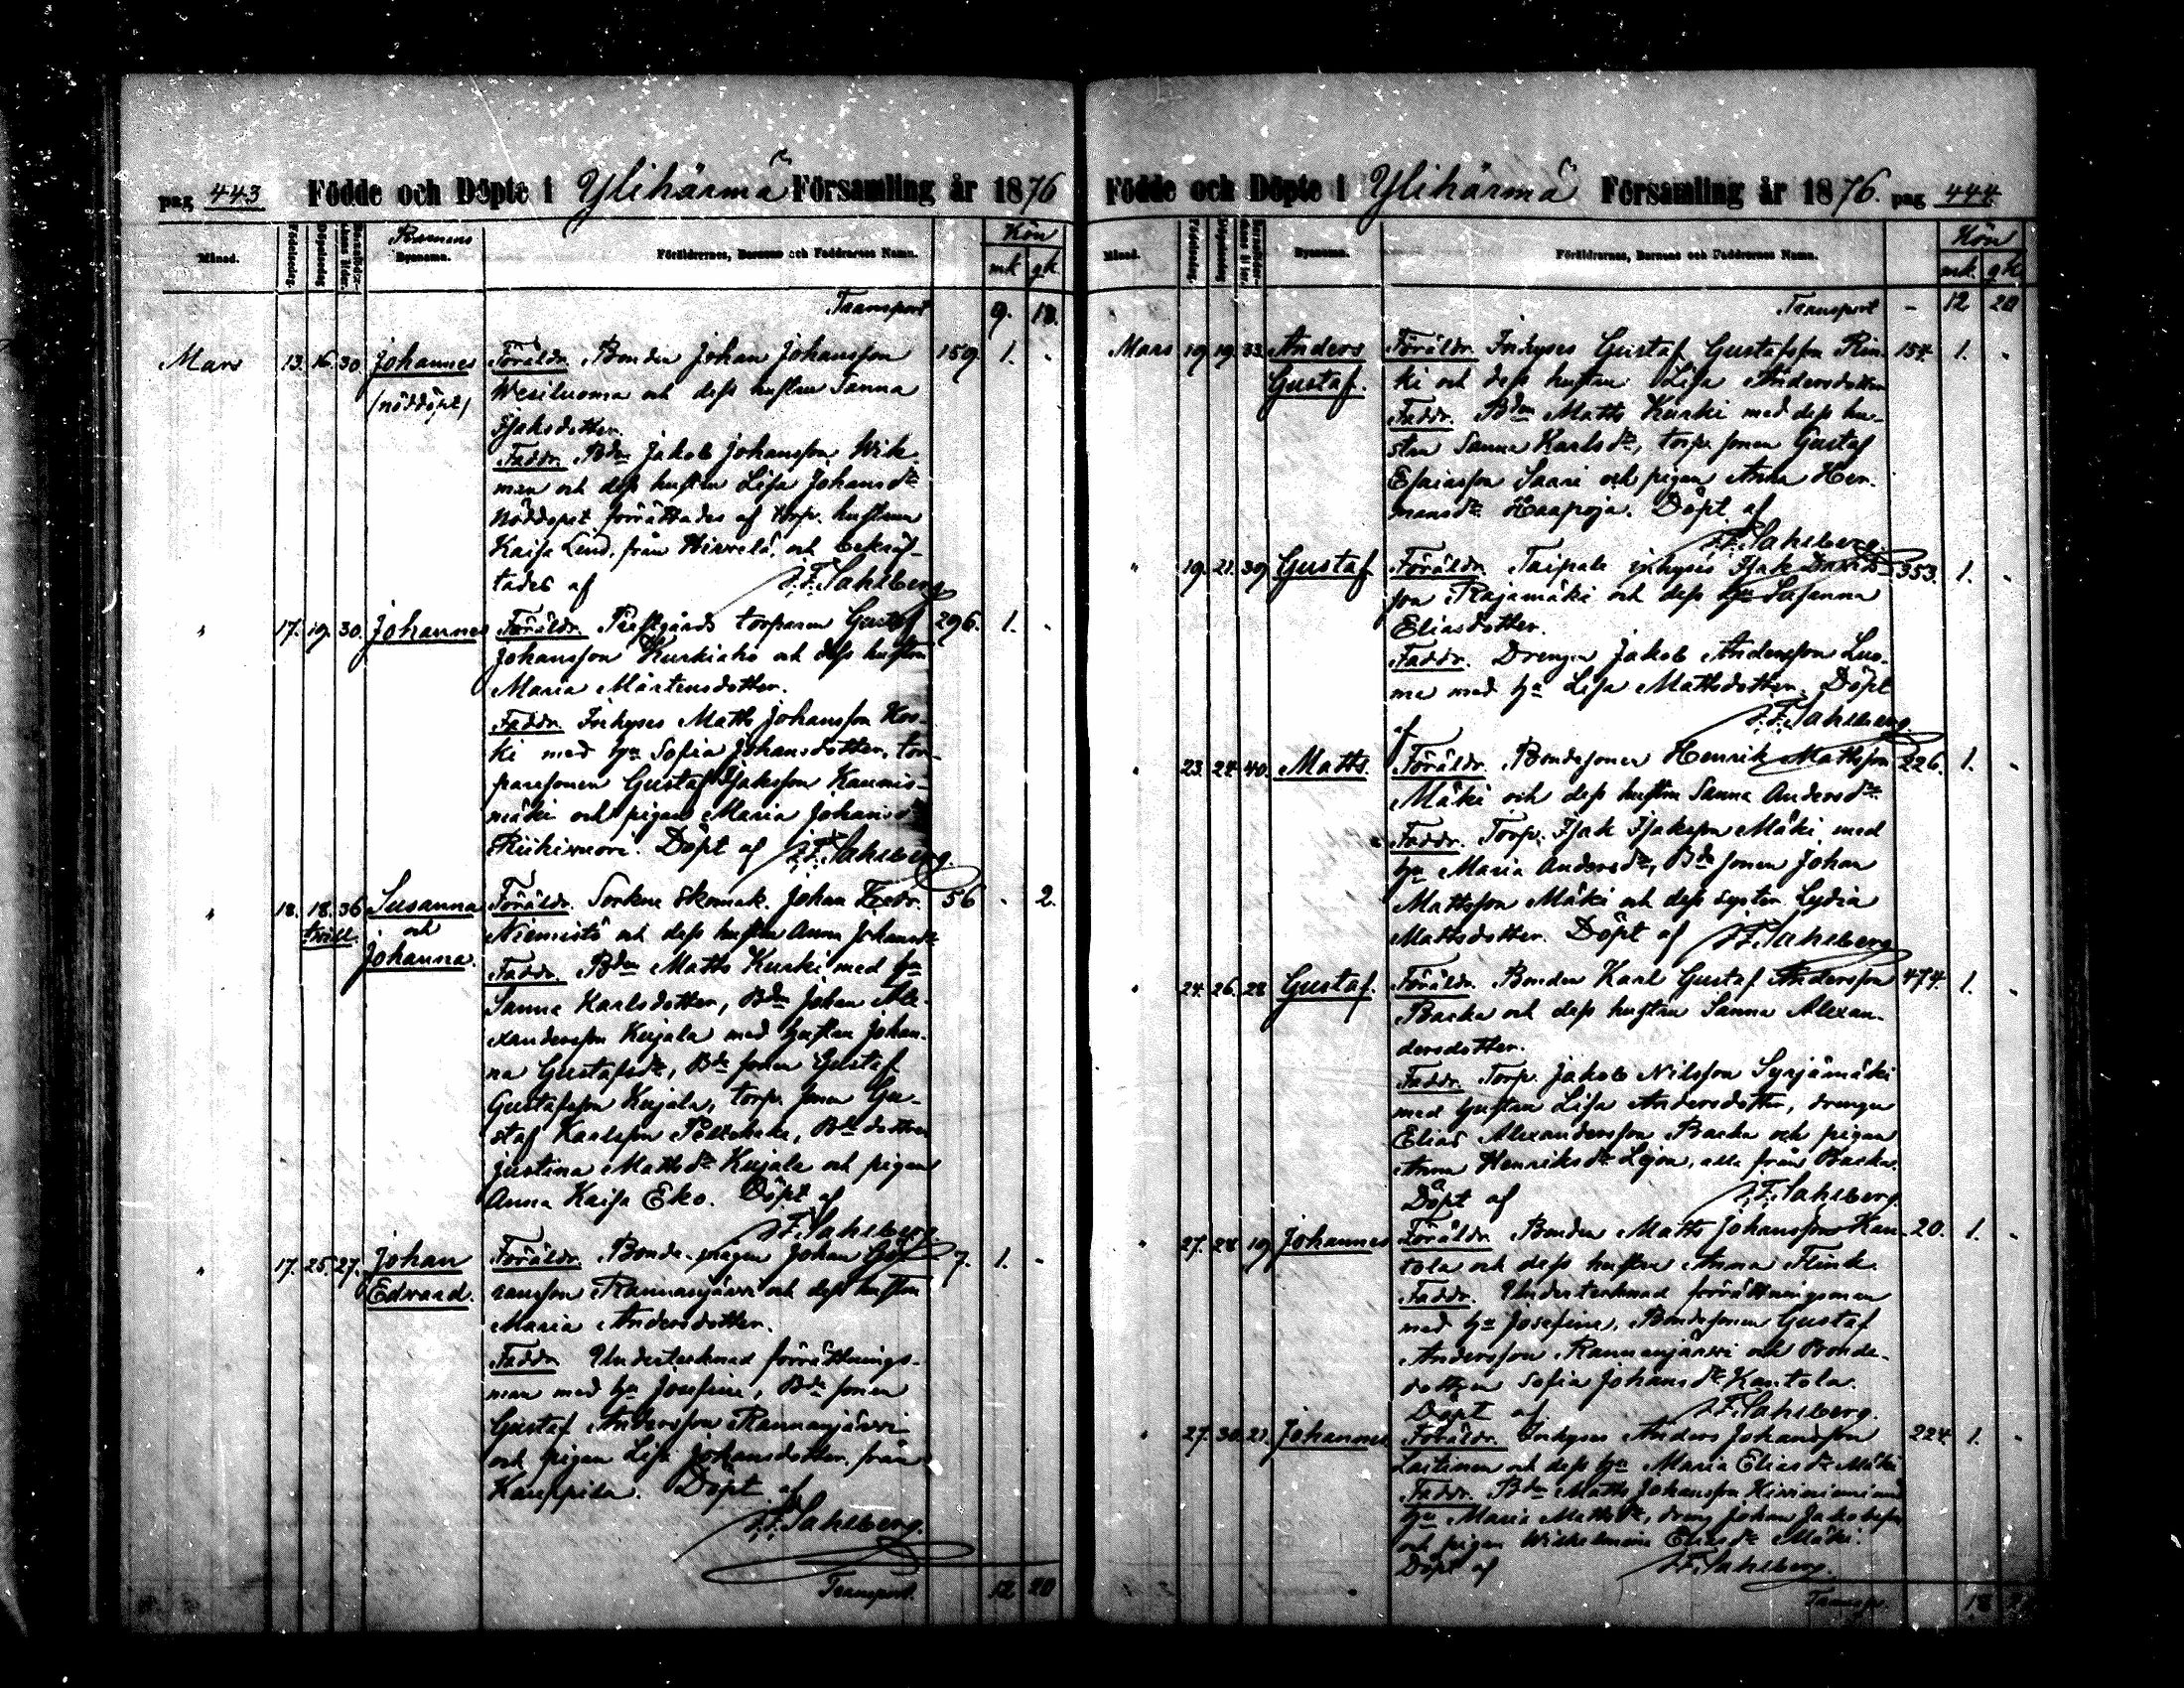 pag 443 Födde och Döpte i Ylihärmä Församling år 1876
Månad. Födelsedag. Döpelsedag Barnens Bynamn. Föräldrarnes, Barnens och Faddrarnes Namn. Kön
mk qk.
Transport 9. 18.
Mars 13. 16. 30. Johannes Föräldr. Bonden Johan Johansson 159. 1. -
/nöddöpt/ Wesiluoma och dess hustru Sanna
Isaksdotter.
Faddr. Bdn Jakob Johansson Wik-
man och dess hustru Lisa Johansdr
Nöddopet förrättades af torp. hustrun
Kaisa Lind, från Hirvelä, och bekräf-
tades af J.F. Sahlberg
" 17. 19. 30. Johannes Föräldr. Prestgårds torparen Gustaf 296. 1. -
Johansson Kurkiaho och dess hustru
Maria Mårtensdotter.
Faddr. Inhyses Matts Johansson Kos-
ki med hu Sofia Johansdotter, tor-
paresonen Gustaf Isaksson Kaunis-
mäki och pigan Maria Johansdr
Riihivuori. Döpt af J.F. Sahlberg.
" 18. 18. 36 Susanna Föräldr. Sockne skomak. Johan Fredr. 56 - 2.
tvill. och Niemistö och dess hustru Anna Johansdr
Johanna. Faddr. Bdn Matts Kurki med hu
Sanna Karlsdotter, Bdn Johan Ale-
xandersson Kujala med hustru Johan-
na Gustafsdr, Bde sonen Gustaf
Gustafsson Kujala, torp. sonen Gu-
staf Karlsson, Bde dottren
Justina Mattsdr Kujala och pigan
Anna Kaisa Eko. Döpt af
J.F. Sahlberg.
" 17. 25. 27. Johan Föräldr. Bonde-mågen Johan Gö- 7. 1. -
Edward. ransson Rannanjärvi och dess hustru
Maria Andersdotter.
Faddr Undertecknad förrättnings-
man med hu Josefine, Bde sonen
Gustaf Andersson Rannanjärvi
och pigan Lisa Johansdotter från
Kauppila. Döpt af
J.F. Sahlberg.
Transport. 12 20
Födde och Döpte i Ylihärmä Församling år 1876. pag 444
Månad. Födelsedag. Döpelsedag Bynamn. Föräldrarnes, Barnens och Faddrarnes Namn. Kön
mk. qk
Transport - 12 20
Mars 19. 19. 33. Anders Föräldr. Inhyses Gustaf Gustafsson Rin- 154. 1. -
Gustaf. ki och dess hustru Lisa Andersdotter
Faddr. Bdn Matts Kurki med dess hu-
stru Sanna Karlsdr, torp. sonen Gustaf
Esaiasson Saari och pigan Anna Her-
mansdr Haapoja. Döpt af
J.F. Sahlberg.
" 19. 21. 39 Gustaf Föräldr. Taipale inhyses Isak Davids- 353. 1. -
son Rajamäki och dess hu Susanna
Eliasdotter.
Faddr. Drengen Jakob Andersson Luo-
ma med hu Lisa Mattsdotter. Döpt
af J.F. Sahlberg.
" 23. 24. 40. Matts. Föräldr. Bondesonen Henrik Mattsson 226. 1. -
Mäki och dess hustru Sanna Andersdr.
Faddr. Torp. Isak Isaksson Mäki med
hu Maria Andersdr, Bde sonen Johan
Mattsson Mäki och dess syster Lydia
Mattsdotter. Döpt af J.F. Sahlberg
" 24. 26. 28 Gustaf. Föräldr. Bonden Karl Gustaf Andersson 474. 1. -
Backa och dess hustru Sanna Alexan-
dersdotter.
Faddr. Torp. Jakob Nilsson Syrjämäki
med hustru Lisa Andersdotter, drengen
Elias Alexandersson Backa och pigan
Anna Henriksdr Lejon, alla från Backa.
Döpt af J.F. Sahlberg.
" 27. 28. 19 Johannes Föräldr. Bonden Matts Johansson Kan- 20. 1. -
tola och dess hustru Anna Flink.
Faddr. Undertecknad förrättningsman
med hu Josefine, Bondesonen Gustaf
Andersson Rannanjärvi och Bonde-
dottren Sofia Johansdr Kantola.
Döpt af J.F. Sahlberg.
" 27. 30. 21. Johannes Föräldr. Inhyses Anders Johansson 224. 1. -
Laitinen och dess hu Maria Eliasdr Mäki
Faddr. Bdn Matts Johansson Hirviniemi med
hu Maria Mattsdr, dreng Johan Jakobsson
och pigan Wilhelmina Eliasdr Mäki.
Döpt af J.F. Sahlberg.
Transp. 18